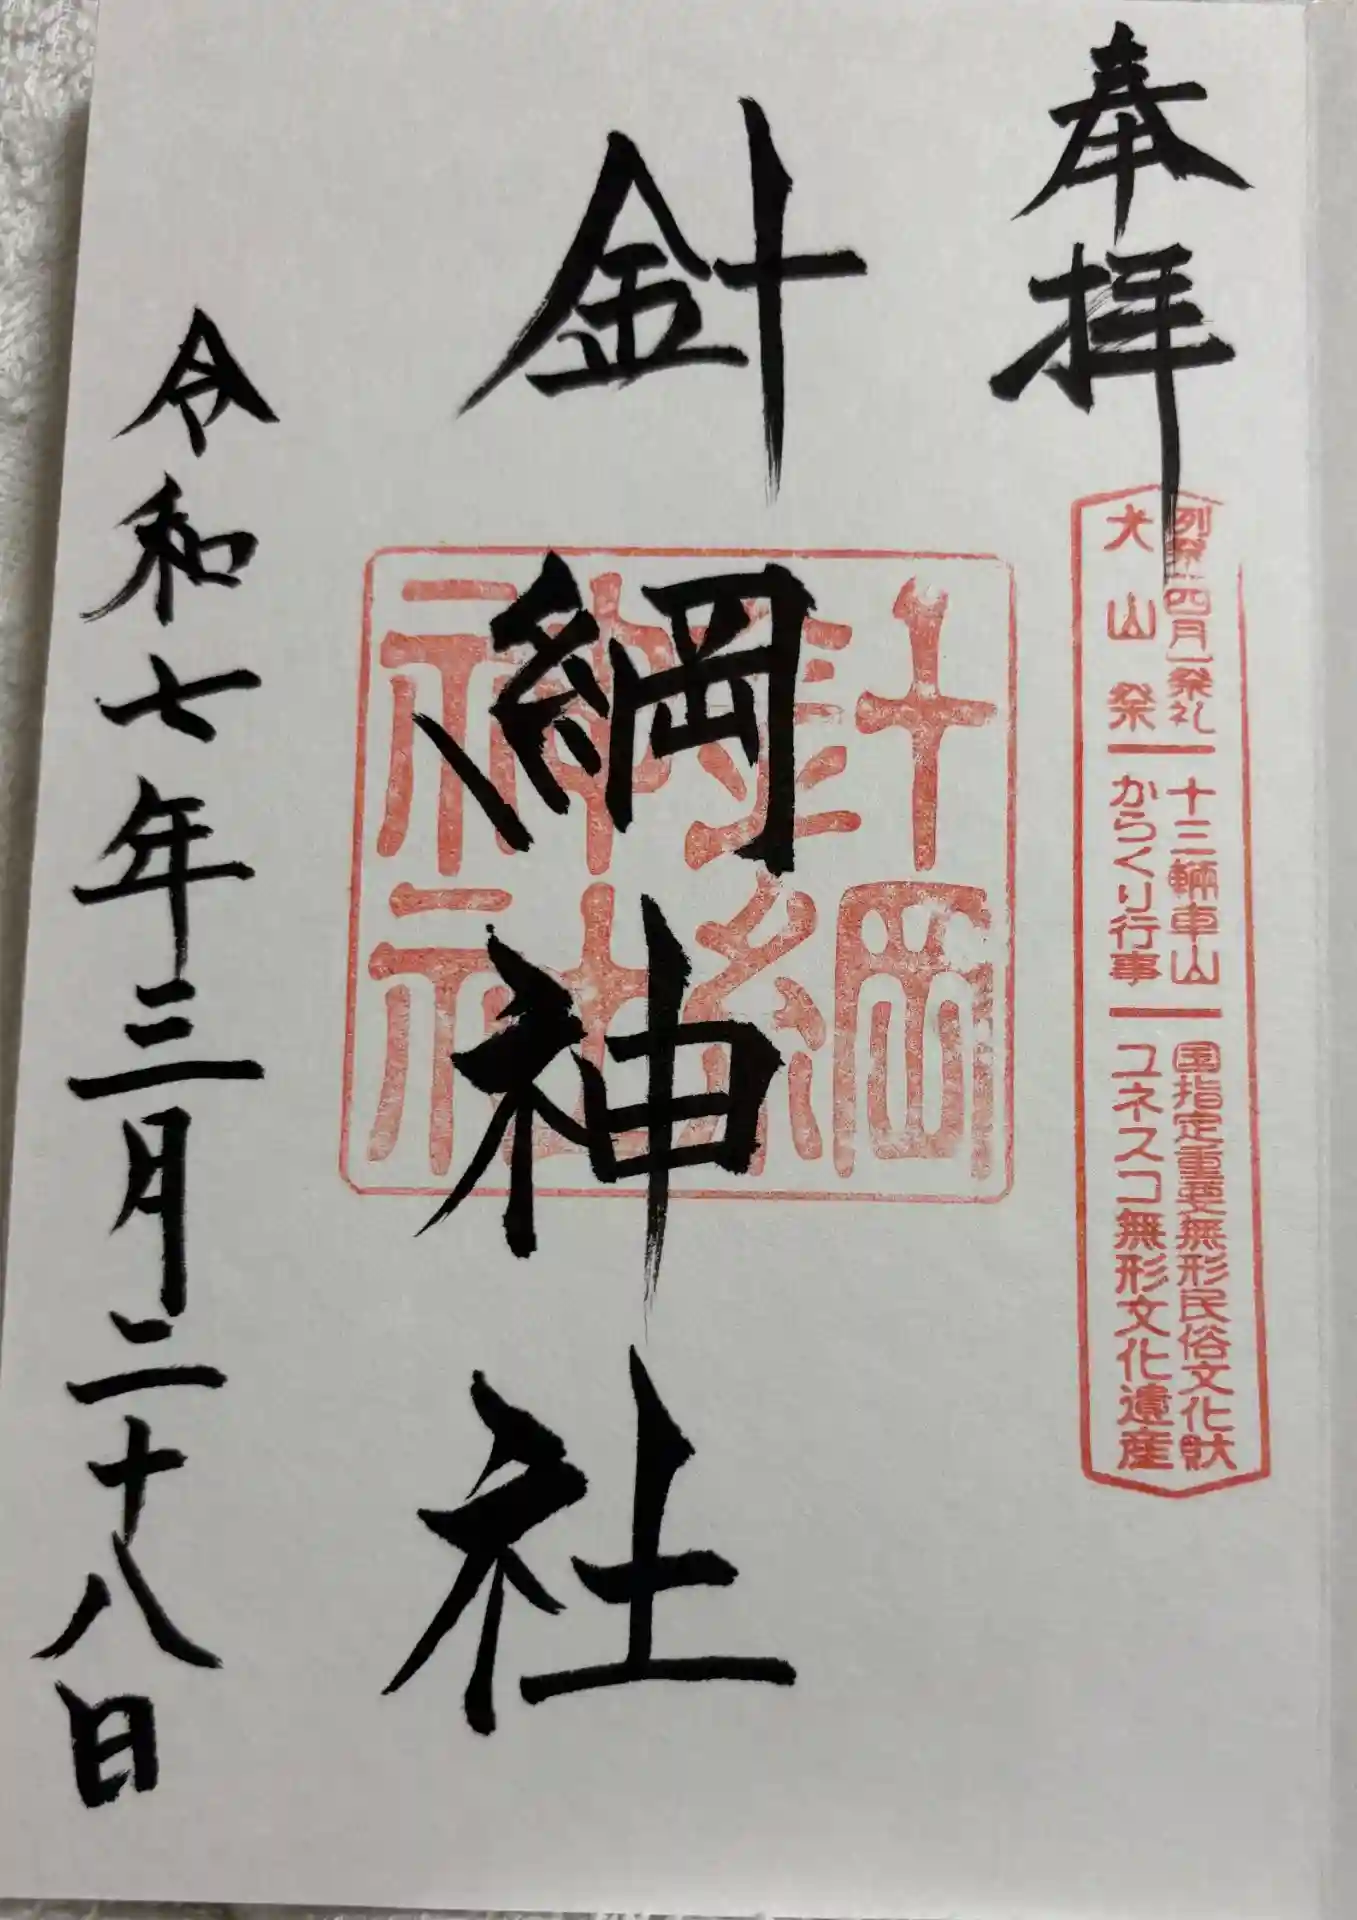 奉拝
例祭 四月 祭礼 十三輌車山 国指定重要無形民俗文化財
犬山祭 からくり行事 ユネスコ無形文化遺産
針綱神社
針綱
神社
令和七年三月二十八日